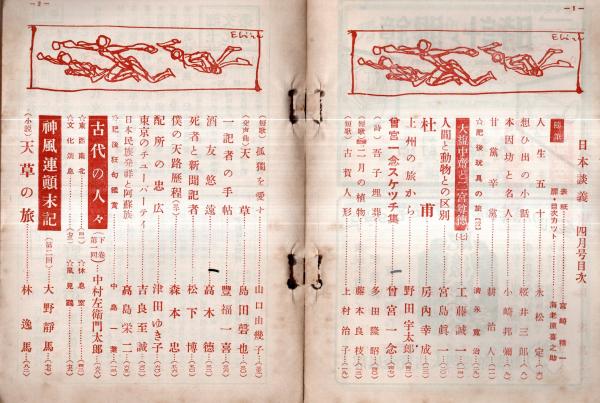 — 1 —
日本談義 四月号目次
表紙 宮崎精一
扉・目次カット 海老原喜之助
随筆
人生五十 永松定
想ひ出の小話 桜井三郎
本因坊と名人 小崎邦彌
甘黨辛黨 耕治人
☆肥後玩具の旅 清永寛治
大塩中齋と二宮尊徳(七) 工藤誠一
人間と動物との区別 宮島眞一
杜甫 房内幸成
上州の旅から 野田宇太郎
曾宮一念スケッチ集 曾宮一念
(詩)吾子埋葬 多田隆昭
(短歌)二月の植物 藤本良枝
(短歌)古賀人形 上村治子
Ebisu
— 2 —
(短歌)孤獨を愛す 山口由幾子
天草 島田磬也
一記者の手帖 豊福一喜
酒友悠遠 高木德
死者と新聞記者 松下博
僕の天路歴程 森本忠
配所の忠広 津田ゆき子
東京のチューパーティ 吉良至誠
日本民族発祥と阿蘇族 高島栄二
☆肥後狂句鑑賞 中島一葉
古代の人々(下巻第一回) 中村左衛門太郎
☆東西南北 ☆休息室
☆文化消息 ☆風見鶏
神風連顛末記(第二回) 大野靜馬
(小説)天草の旅 林逸馬